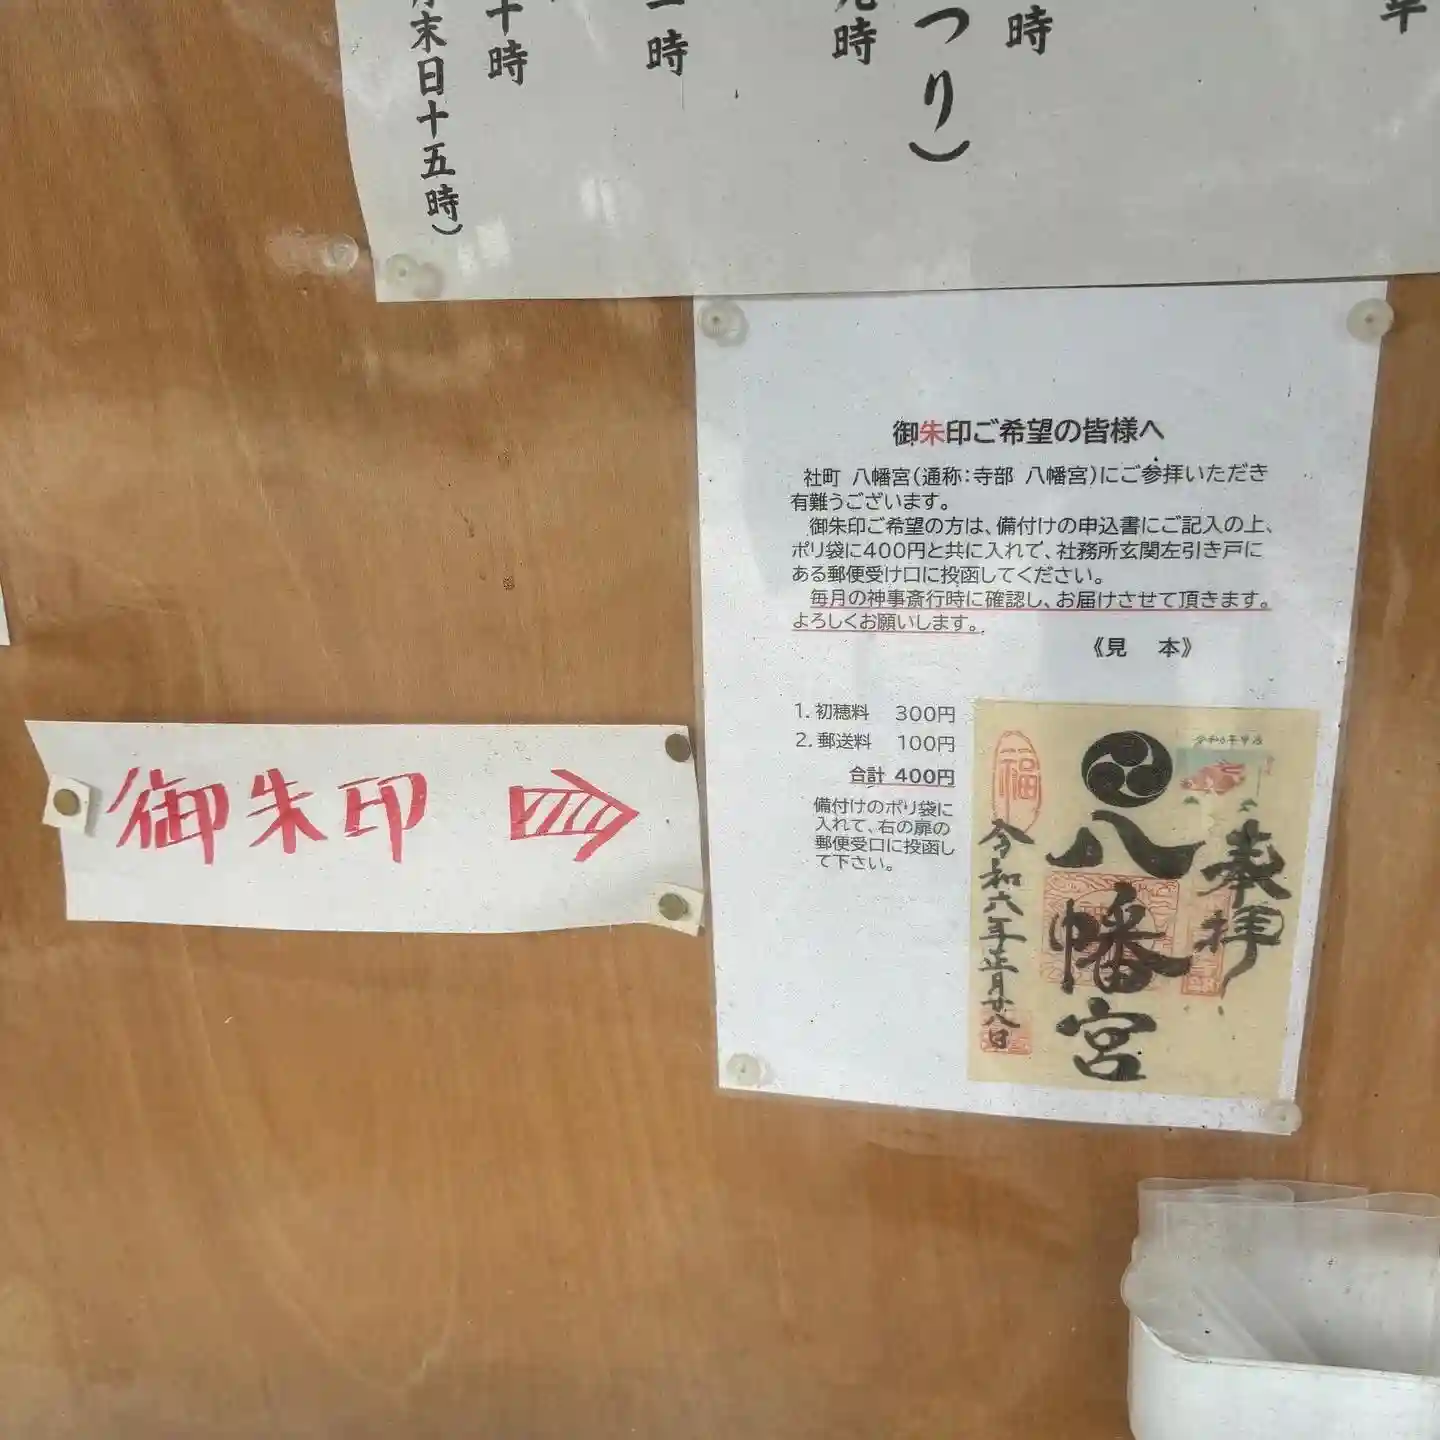 時
つり）
九時
一時
十時
月末日十五時）
御朱印ご希望の皆様へ
社町 八幡宮（通称：寺部 八幡宮）にご参拝いただき
有難うございます。
御朱印ご希望の方は、備付けの申込書にご記入の上、
ポリ袋に400円と共に入れて、社務所玄関左引き戸に
ある郵便受け口に投函してください。
毎月の神事斎行時に確認し、お届けさせて頂きます。
よろしくお願いします。
《見 本》
1. 初穂料 300円
2. 郵送料 100円
合計 400円
備付けのポリ袋に
入れて、右の扉の
郵便受口に投函し
て下さい。
奉拝
八幡宮
福
令和六年正月廿八日
御朱印